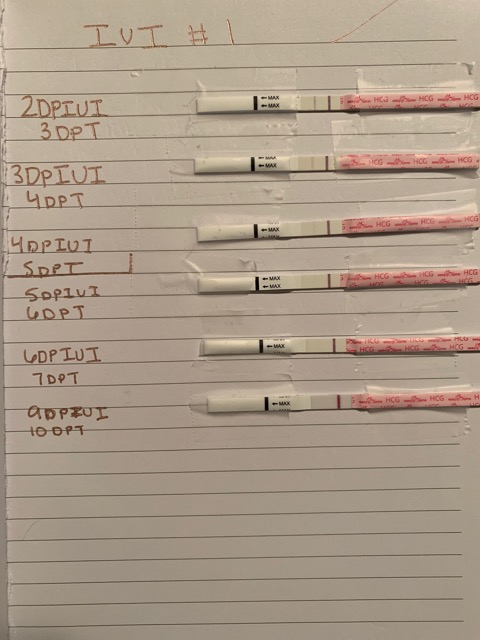 IUI # 1
2DPIUI
3DPT
←MAX
←MAX
HCG HCG HCG
3DPIUI
4DPT
←MAX
←MAX
HCG HCG
4DPIUI
5DPT
←MAX
HCG HCG HCG
5DPIUI
6DPT
←MAX
←MAX
HCG HCG
6DPIUI
7DPT
←MAX
HCG HCG HCG
9DPIUI
10DPT
←MAX
HCG HCG HCG